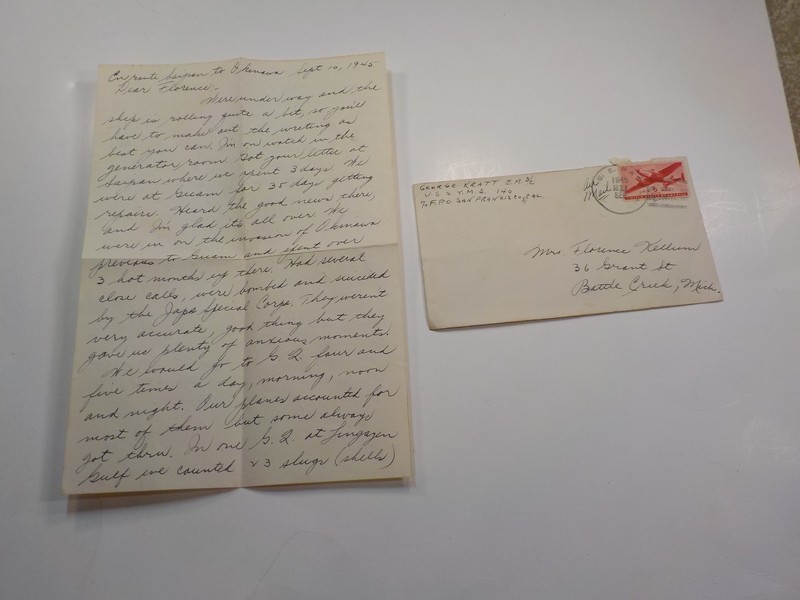 Enroute Saipan to Okinawa Sept 10, 1945
Dear Florence:-
Were under way and the
ship is rolling quite a bit, so you'll
have to make out the writing as
best you can. I'm on watch in the
generator room. Got your letter at
Saipan where we spent 3 days. We
were at Guam for 30 days getting
repairs. Heard the good news there,
and I'm glad its all over. We
were in on the invasion of Okinawa
previous to Guam and spent over
3 hot months up there. Had several
close calls, were bombed and suicided
by the Japs Special Corps. They werent
very accurate, good thing but they
gave us plenty of anxious moments.
We would go to G.Q. four and
five times a day, morning, noon
and night. Our planes accounted for
most of them but some always
got thru. In one G.Q. at Lingayen
Gulf we counted 23 slugs (shells)
GEORGE KRATT E.M. 3/c
U.S.S. Y.M.S. 140
% F.P.O SAN FRANCISCO, CAL
Air
Mail
1945
Mrs. Florence Kellum
36 Grant St
Battle Creek, Mich.